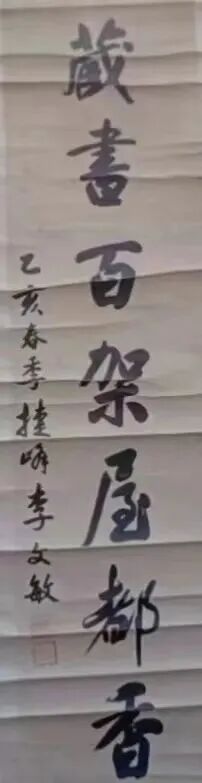 藏書百架屋都香
乙亥春季捷峰李文敏